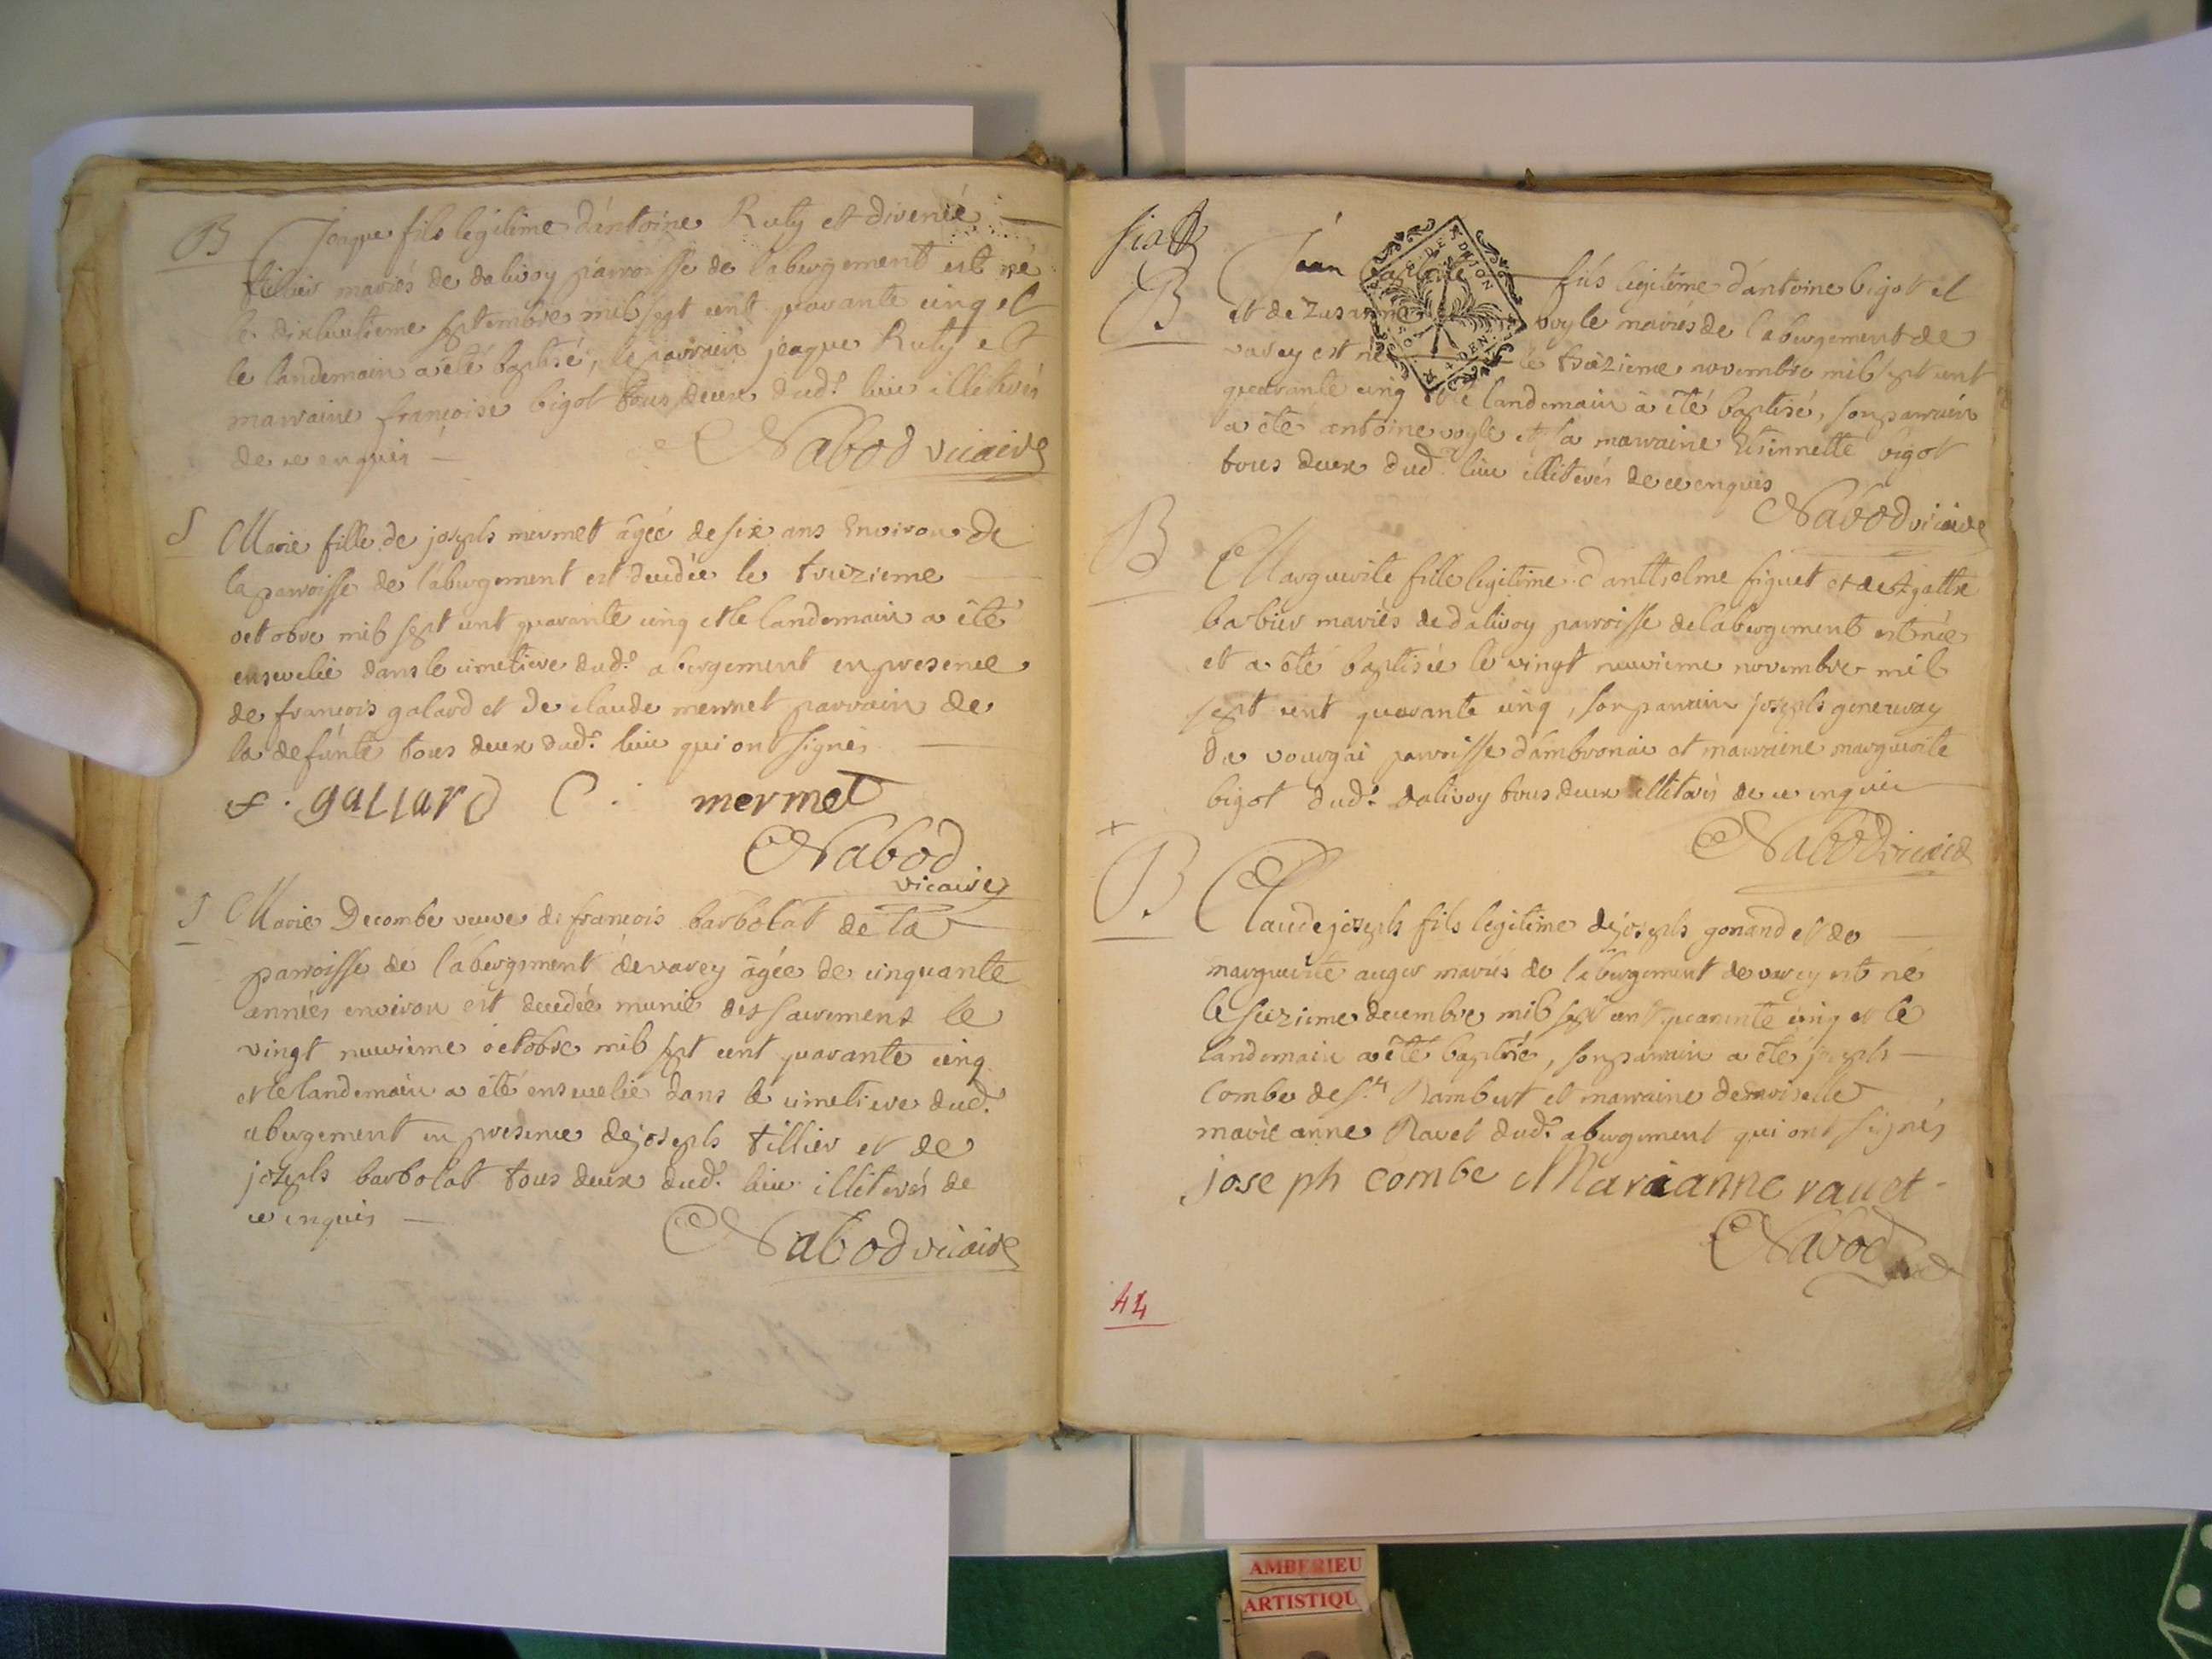 B Jeaque fils legitime d'antoine Ruty et divenié
tillier mariés de dalivoy parroisse de l'abergement est né
le dixhuitieme septembre mil sept cent quarante cinq et
le landemain a été baptisé, le parrain jeaque Ruty et
marraine françoise bigot tous deux dud. lieu illiterés
de ce enquis
Nabod vicaire
S Marie fille de joseph mermet âgée de six ans Environ de
la parroisse de l'abergement est decedée le treizieme
octobre mil sept cent quarante cinq et le landemain a été
ensevelie dans le cimetiere dud. abergement en presence
de francois galard et de claude mermet parrain de
la defunte tous deux dud. lieu qui ont signés
f. gallard C. mermet
Nabod
vicaire
S Marie Decombe veuve de francois barbolat de la
parroisse de l'abergement de varey âgée de cinquante
années environ est decedée munie des sacrements le
vingt neuvieme octobre mil sept cent quarante cinq
et le landemain a été ensevelie dans le cimetiere dud.
abergement en presence de joseph tillier et de
joseph barbolat tous deux dud. lieu illiterés de
ce enquis
Nabod vicaire
B Jean baptiste fils legitime d'antoine bigot et
et de Zusanne voyle mariés de l'abergement de
varey est né le treizieme novembre mil sept cent
quarante cinq et le landemain à été baptisé, son parrain
a été antoine voyle et sa marraine Etiennette bigot
tous deux dud. lieu illiterés de ce enquis
Nabod vicaire
B Marguerite fille legitime d'anthelme figuet et de Agathe
barbier mariés de dalivoy parroisse de l'abergement est née
et a été baptisée le vingt neuvieme novembre mil
sept cent quarante cinq, son parrain joseph
de vourgai parroisse d'ambronai et marraine marguerite
bigot dud. dalivoy tous deux illiterés de ce enquis
Nabod vicaire
+
B Claude joseph fils legitime de joseph gonand et de
marguerite auger mariés de l'abergement de varey est né
le seizieme decembre mil sept cent quarante cinq et le
landemain a été baptisé, son parrain a été joseph
Combe de St Rambert et marraine demoiselle
marie anne Ravet dud. abergement qui ont signés
joseph combe Marianne ravet
Nabod
44
AMBERIEU
ARTISTIQU